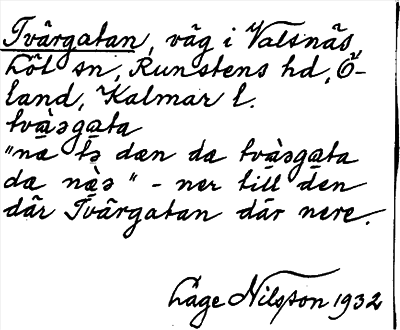 Tvärgatan, väg i Valsnäs,
Löt sn, Runstens hd, Ö-
land, Kalmar l.
tvæ̀əgata
"næ tə dæn da tvæ̀əgata
da næ̀ə" - ner till den
där Tvärgatan där nere.
Låge Nilsson 1932